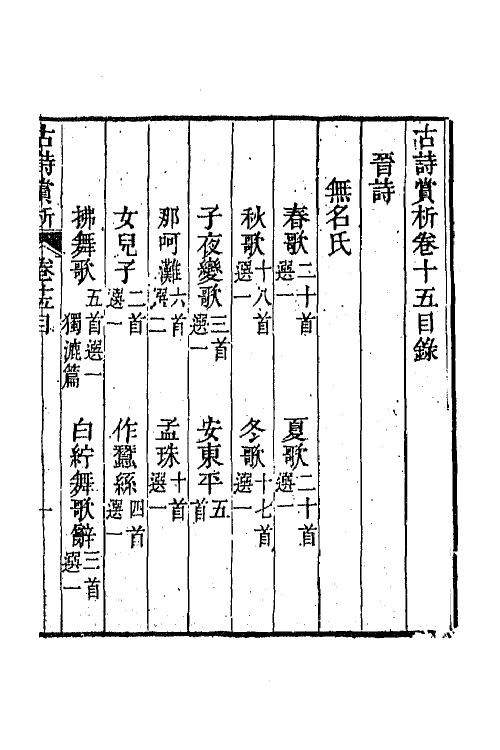 古詩賞析卷十五目錄
晉詩
無名氏
春歌二十首選一 夏歌二十首選一
秋歌十八首選一 冬歌十七首選一
子夜變歌三首選一 安東平五首
那呵灘六首選二 孟珠十首選一
女兒子二首選一 作蠶絲四首選一
拂舞歌五首選一獨漉篇 白紵舞歌辭三首選一
古詩賞析 卷十五目 一